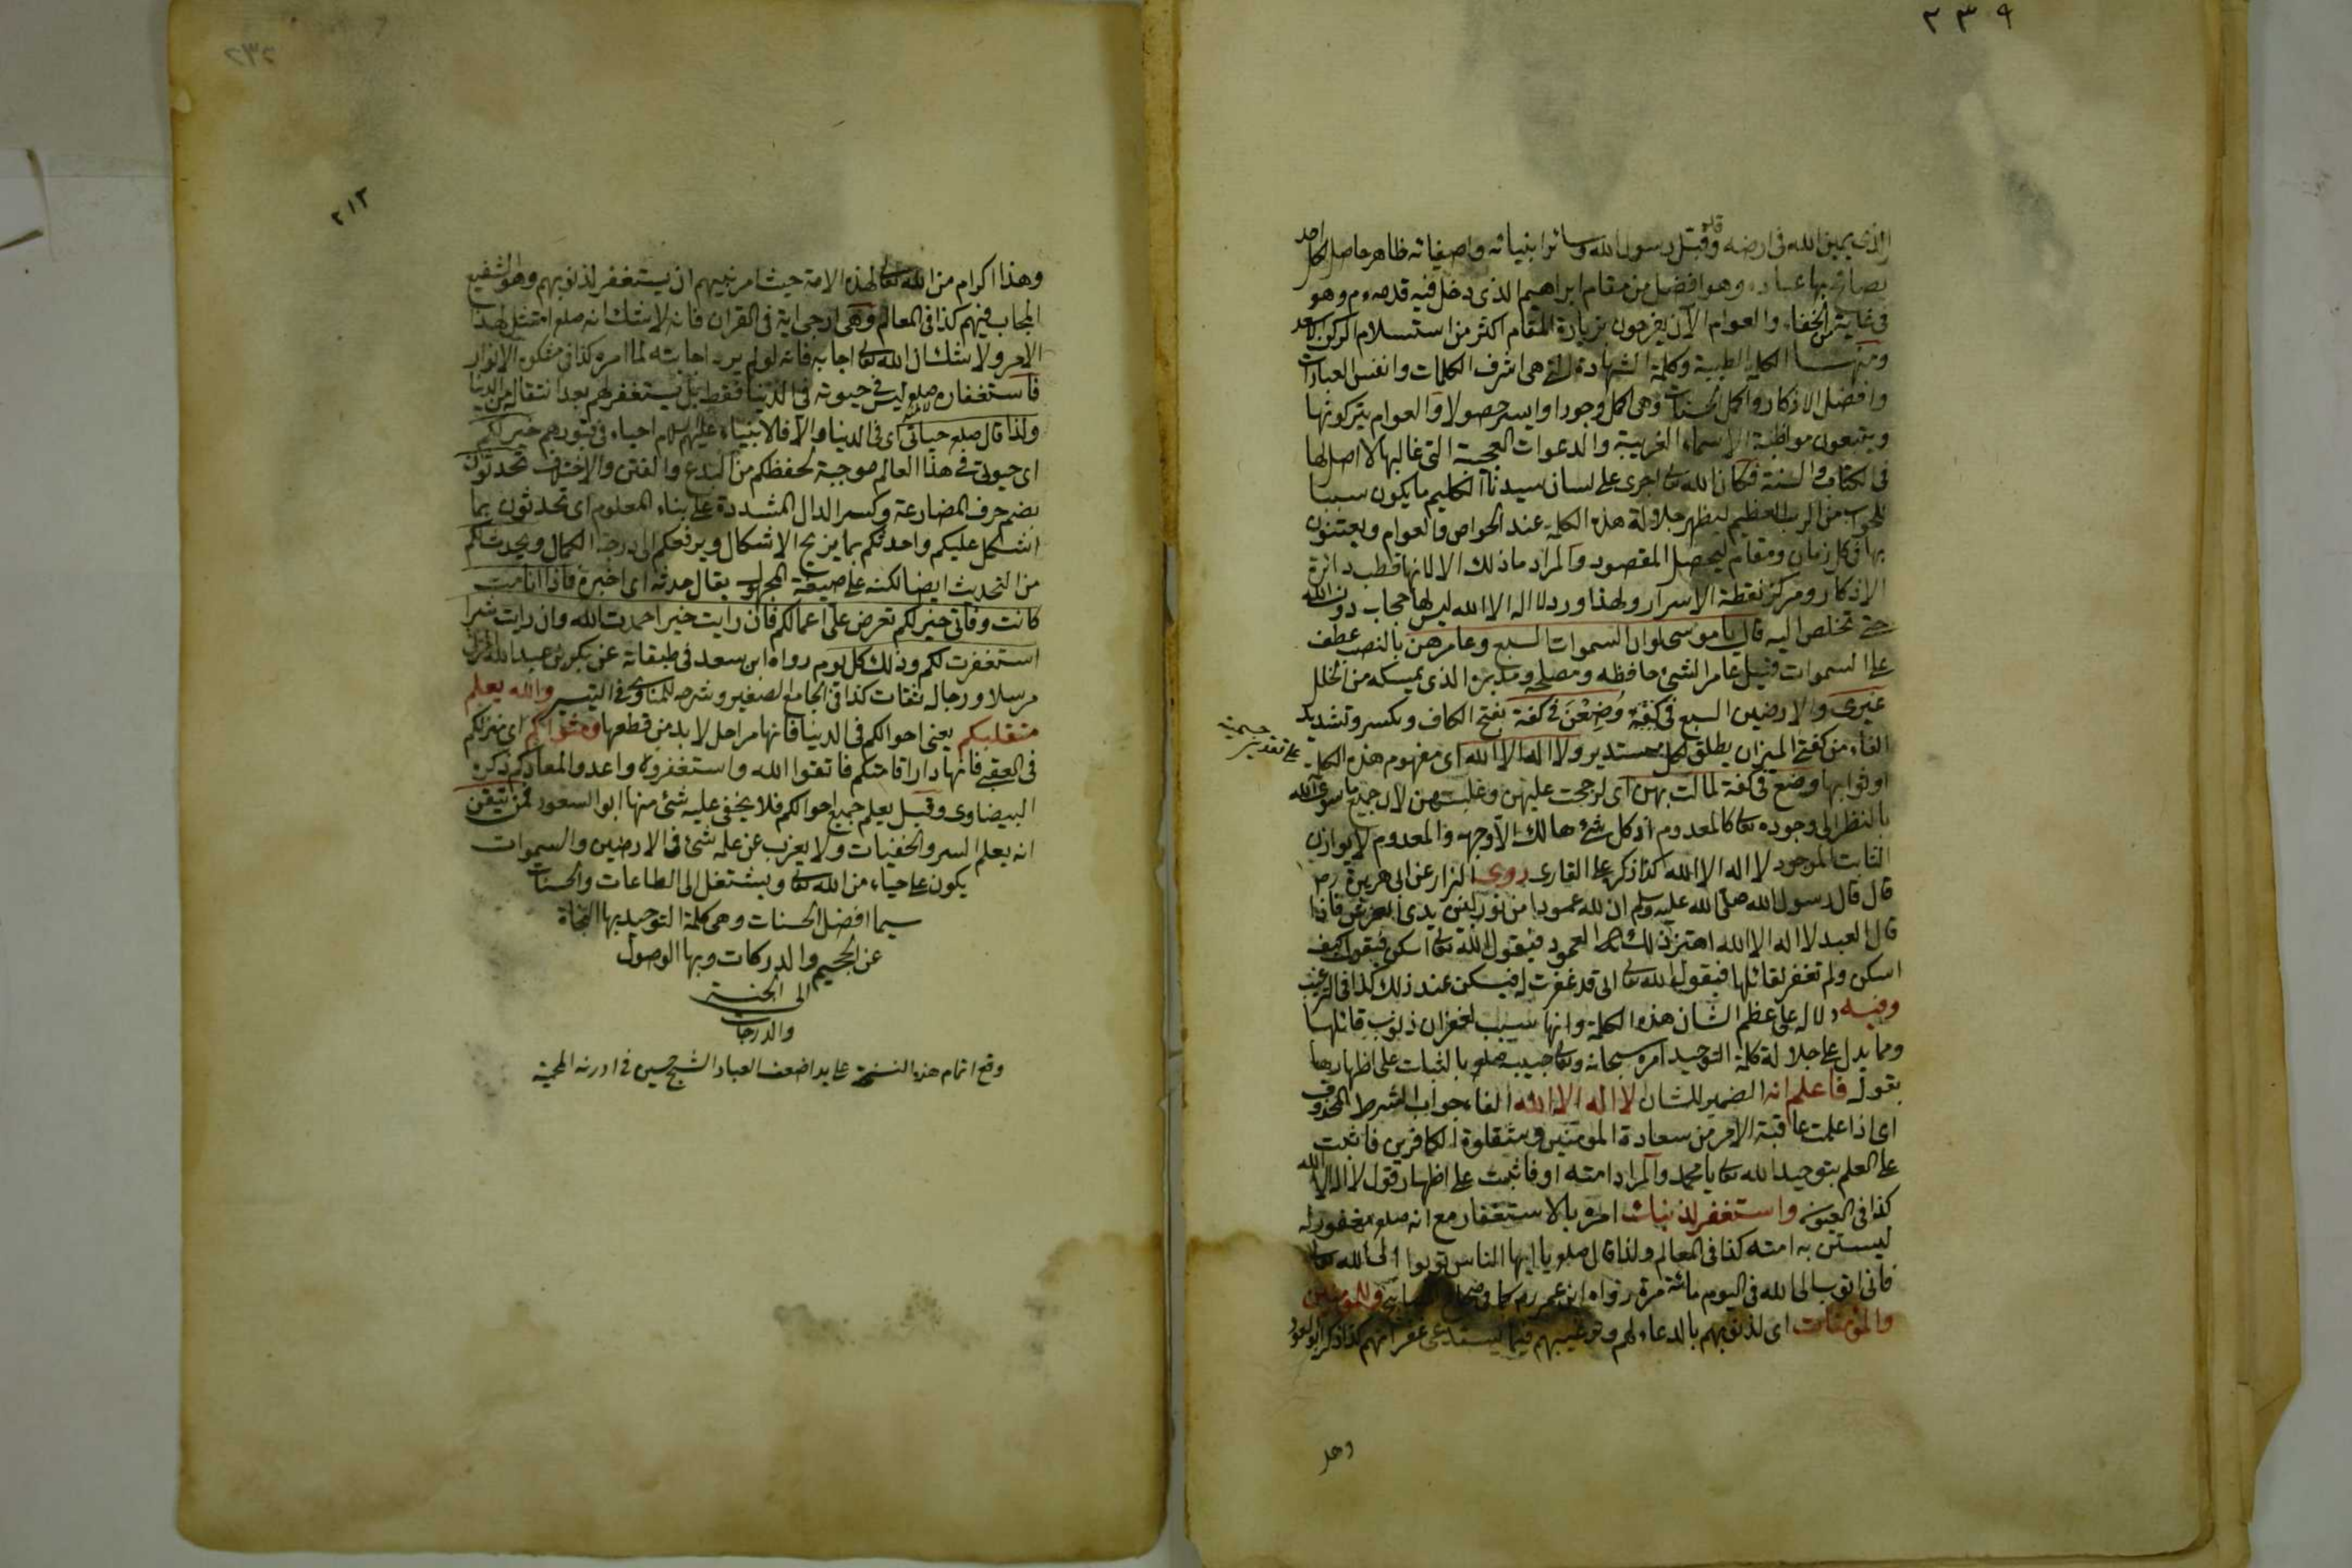 ٢٣٩
الذى يمين الله فى ارضه وقد قبله رسول الله وسائر انبيائه واصفيائه ظاهر حاصل لكل احد
يصافح بها عباده وهو افضل من مقام ابراهيم الذى دخل فيه قدمه وهو
فى غاية من الخفاء والعوام الآن يفرحون بزيارة المقام اكثر من استلام الركن الاسعد
ومنها الكلمة الطيبة وكلمة الشهادة التى هى اشرف الكلمات وانفس العبادات
وافضل الاذكار واكمل الحسنات وهى اكمل وجودا وايسر حصولا والعوام يتركونها
ويتبعون مواظبة الاسماء الغريبة والدعوات العجيبة التى غالبها لا اصل لها
فى الكتاب والسنة فكان الله تعالى اجرى على لسان سيدنا الكليم ما يكون سببا
للجواب من الرب العظيم ليظهر جلالة هذه الكلمة عند الخواص والعوام ويعتنون
بها فى كل زمان ومقام ليحصل المقصود والمراد ماذلك الا لانها قطب دائرة
الاذكار ومركز نقطة الاسرار ولهذا ورد لا اله الا الله ليس لها حجاب دون الله
حتى تخلص اليه قال يا موسى لو ان السموات السبع وعامرهن بالنصب عطف
على السموات قيل عامر الشئ حافظه ومصلحه ومدبره الذى يمسكه من الخلل
غيرى والارضين السبع فى كفة وضعن فى كفة بفتح الكاف وبكسر وتشديد
الفاء من كفة الميزان يطلق لكل مستدير ولا اله الا الله اى مفهوم هذه الكلمة
على تقدير جسمية
او ثوابها وضع فى كفة لمالت بهن اى لرجحت عليهن وغلبتهن لان جميع ما سوى الله
بالنظر الى وجوده تعالى كالمعدوم اذ كل شئ هالك الا وجهه والمعدوم لا يوازن
الثابت الموجود لا اله الا الله كذا ذكره على القارى روى البزار عن ابى هريرة رض
قال قال رسول الله صلى الله عليه وسلم ان لله عمودا من نور بين يدى العرش فاذا
قال العبد لا اله الا الله اهتز ذلك العمود فيقول الله تعالى اسكن فيقول كيف
اسكن ولم تغفر لقائلها فيقول الله تعالى انى قد غفرت له فيسكن عند ذلك كذا فى الترغيب
وفيه دلالة على عظم الشان هذه الكلمة وانها سبب لغفران ذنوب قائلها
ومما يدل على جلالة كلمة التوحيد امره سبحانه وتعالى حبيبه صلعم بالثبات على اظهارها
بقوله فاعلم انه الضمير للشان لا اله الا الله الفاء جواب الشرط المحذوف
اى اذا علمت عاقبة الامر من سعادة المؤمنين وشقاوة الكافرين فاثبت
على العلم بتوحيد الله تعالى يا محمد والمراد امته او فاثبت على اظهار قول لا اله الا الله
كذا فى العيون واستغفر لذنبك امره بالاستغفار مع انه صلعم مغفور له
ليستن به امته كذا فى المعالم ولذا قال صلعم يا ايها الناس توبوا الى الله تعالى
فانى اتوب الى الله فى اليوم مائة مرة رواه ابن عمر رض كما فى وللمؤمنين
والمؤمنات اى لذنوبهم بالدعاء لهم وترغيبهم فيما يستدعى غفرانهم كذا ذكر ابو السعود
وهذ
٢١٢
وهذا اكرام من الله تعالى لهذه الامة حيث امر نبيهم ان يستغفر لذنوبهم وهو الشفيع
المجاب فيهم كذا فى المعالم وهى ارجى اية فى القران فانه لا شك انه صلعم امتثل لهذا
الامر ولا شك ان الله تعالى اجابه فانه لو لم يرد اجابته لما امره كذا فى مشكوة الانوار
فاستغفاره صلعم ليس فى حيوته فى الدنيا فقط بل يستغفر لهم بعد انتقاله من الدنيا
ولذا قال صلعم حياتى اى فى الدنيا والا فالانبياء عليهم السلام احياء فى قبورهم خير لكم
اى حيوتى فى هذا العالم موجبة لحفظكم من البدع والفتن والاختلاف تحدثون
بضم حرف المضارعة وكسر الدال المشددة على بناء المعلوم اى تحدثون بما
اشكل عليكم واحدثكم بما يزيح الاشكال ويرفعكم الى درجة الكمال ويحدث لكم
من التحديث ايضا لكنه على صيغة المجهول يقال حدثه اى اخبره فاذا انا مت
كانت وفاتى خير لكم تعرض على اعمالكم فان رايت خيرا حمدت الله وان رايت شرا
استغفرت لكم وذلك كل يوم رواه ابن سعد فى طبقاته عن بكر بن عبد الله المزنى
مرسلا ورجاله ثقات كذا فى الجامع الصغير وشرحه للمناوى فى التيسير والله يعلم
متقلبكم يعنى احوالكم فى الدنيا فانها مراحل لا بد من قطعها ومثواكم اى منزلكم
فى العقبى فانها دار اقامتكم فاتقوا الله واستغفروه واعدوا لمعادكم ذكره
البيضاوى وقيل يعلم جميع احوالكم فلا يخفى عليه شئ منها ابو السعود فمن تيقن
انه يعلم السر والخفيات ولا يعزب عن علمه شئ فى الارضين والسموات
يكون على حياء من الله تعالى ويشتغل الى الطاعات والحسنات
سيما افضل الحسنات وهى كلمة التوحيد بها النجاة
عن الجحيم والدركات وبها الوصول
الى الجنة
والدرجات
وقع اتمام هذه النسخة على يد اضعف العباد الشيخ حسين فى ادرنه المحمية